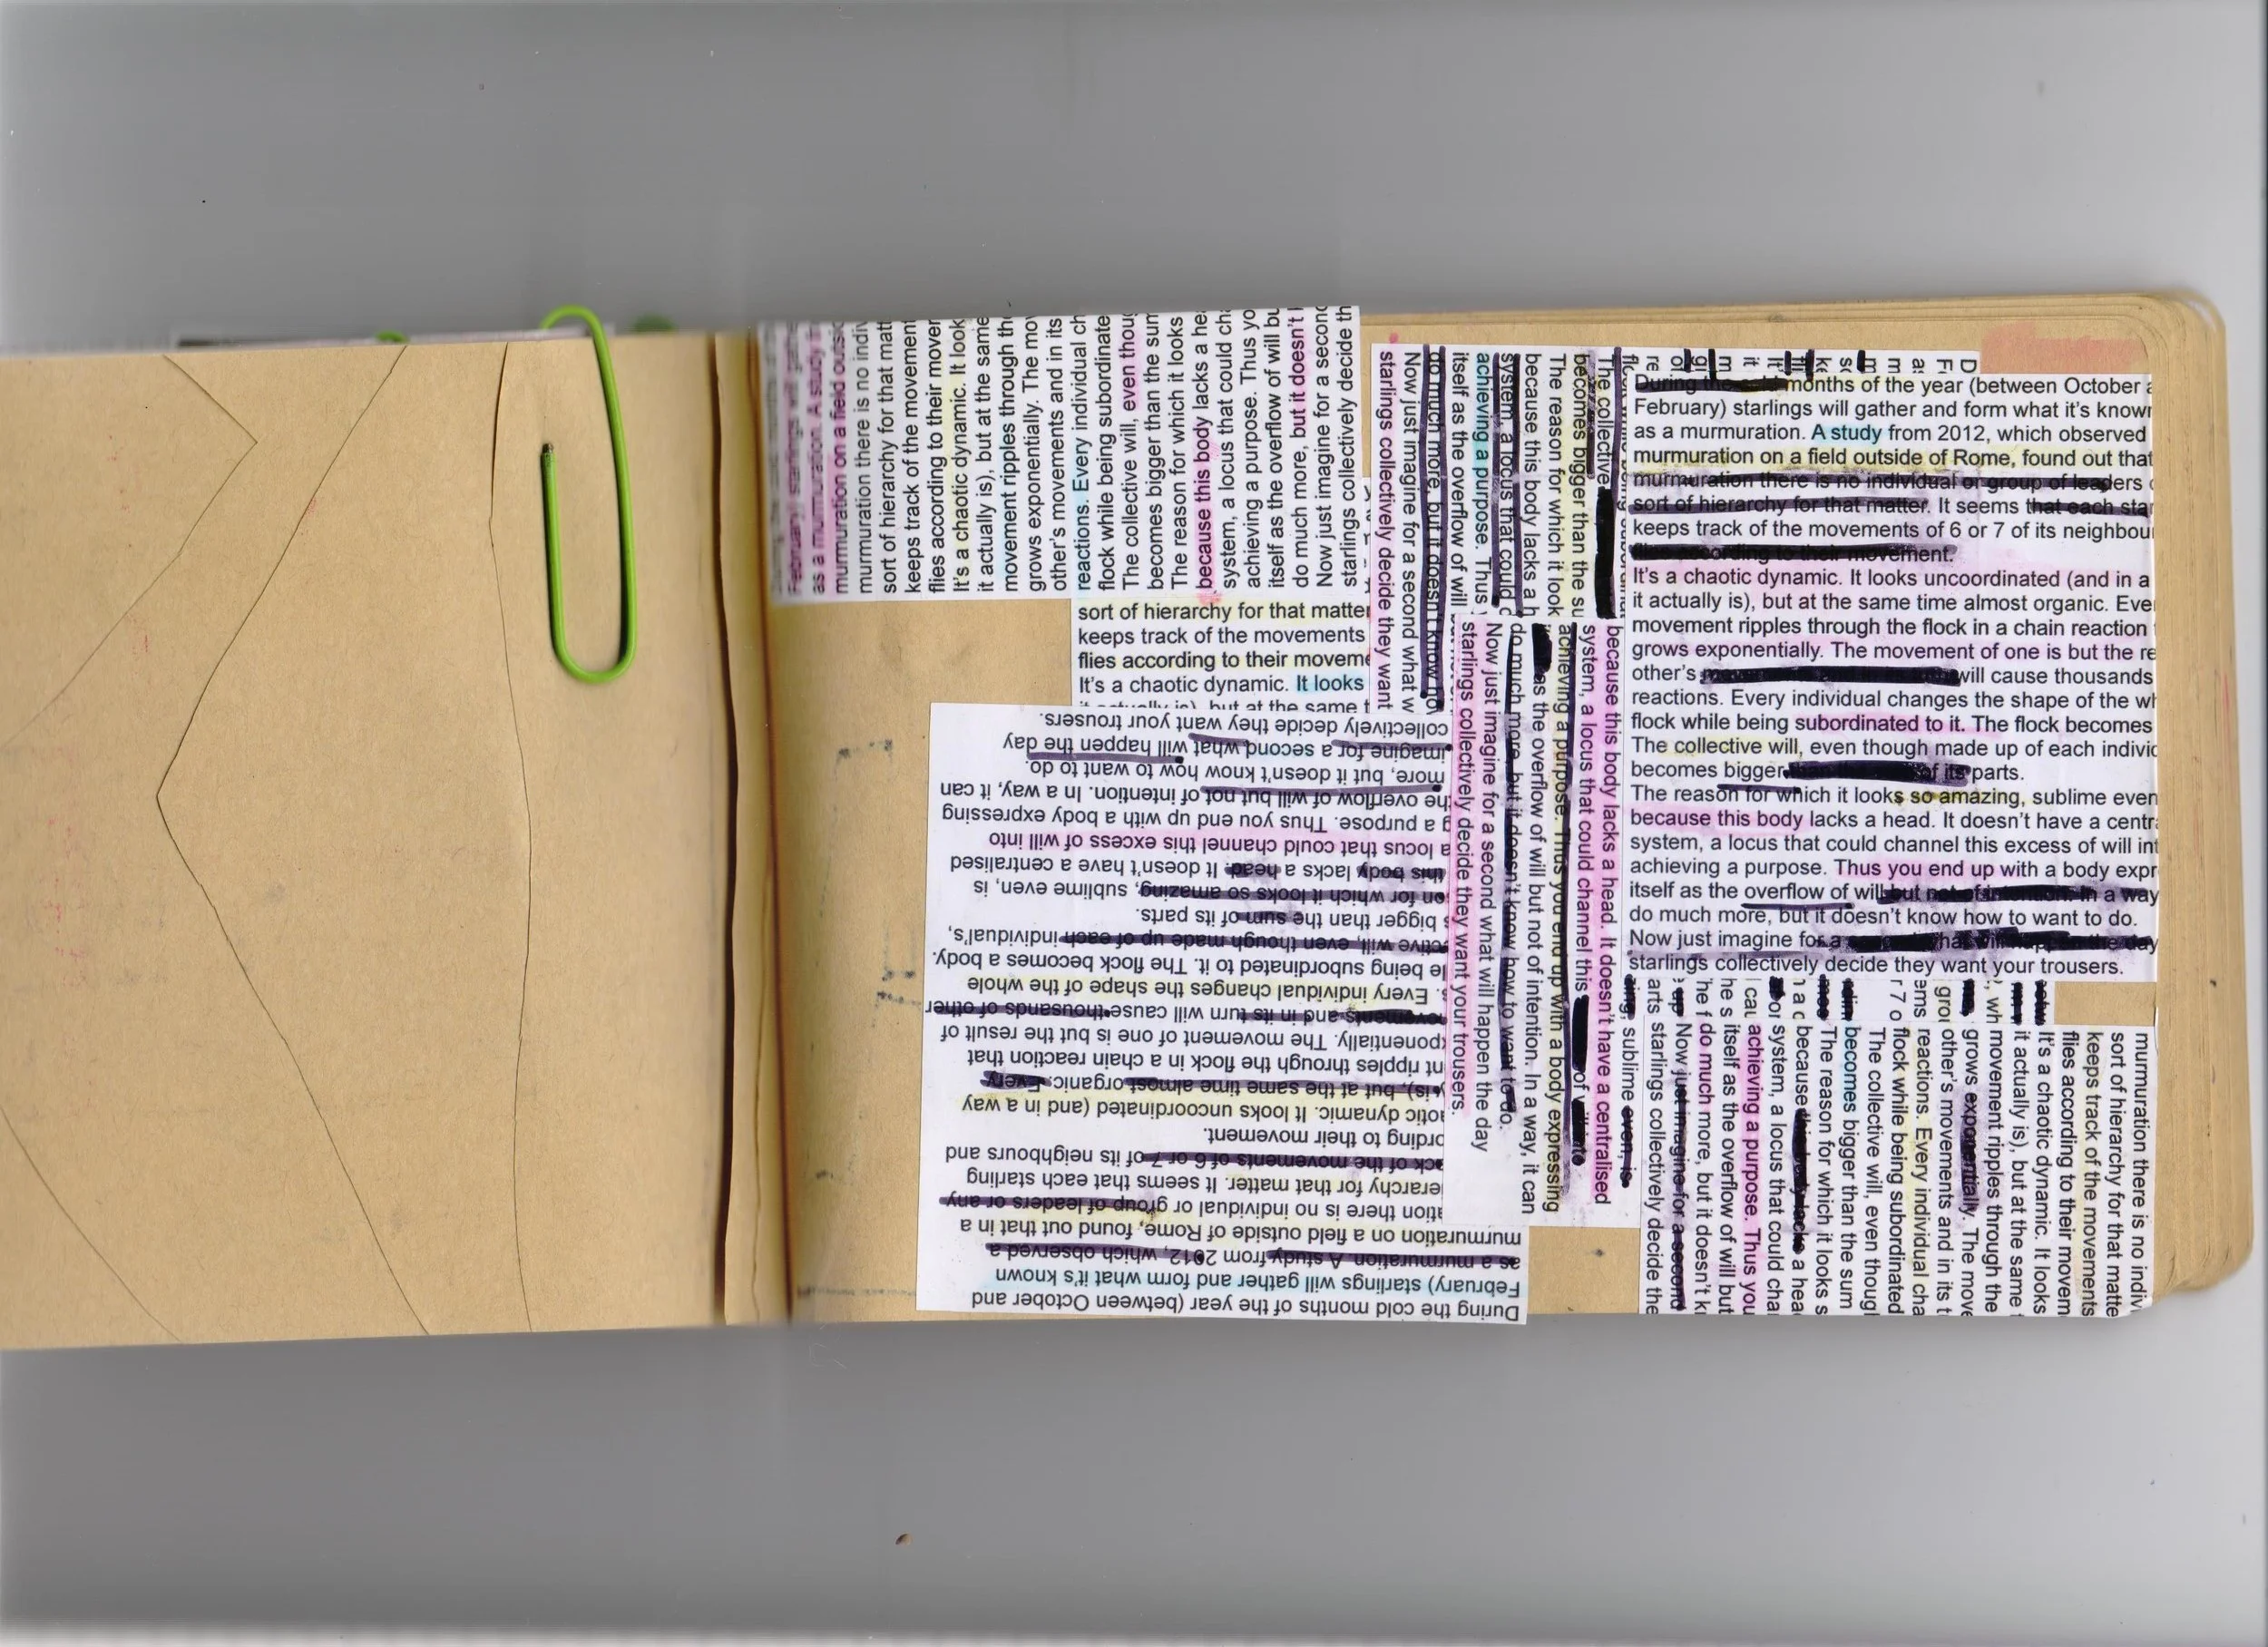 February) starlings will gath
as a murmuration. A study
murmuration on a field outsi
murmuration there is no indiv
sort of hierarchy for that matt
keeps track of the movement
flies according to their mover
It's a chaotic dynamic. It look
it actually is), but at the same
movement ripples through th
grows exponentially. The mov
other's movements and in its
reactions. Every individual ch
flock while being subordinate
The collective will, even thoug
becomes bigger than the sum
The reason for which it looks
because this body lacks a hea
system, a locus that could cha
achieving a purpose. Thus yo
itself as the overflow of will bu
do much more, but it doesn't
Now just imagine for a second
starlings collectively decide th
sort of hierarchy for that matter
keeps track of the movements
flies according to their moveme
It's a chaotic dynamic. It looks
it actually is), but at the same t
During the cold months of the year (between October and
February) starlings will gather and form what it's known
as a murmuration. A study from 2012, which observed a
murmuration on a field outside of Rome, found out that in a
ation there is no individual or group of leaders or any
ierarchy for that matter. It seems that each starling
ack of the movements of 6 or 7 of its neighbours and
ording to their movement.
aotic dynamic. It looks uncoordinated (and in a way
is), but at the same time almost organic. Every
nt ripples through the flock in a chain reaction that
xponentially. The movement of one is but the result of
ovements and in its turn will cause thousands of other
s. Every individual changes the shape of the whole
ile being subordinated to it. The flock becomes a body.
ctive will, even though made up of each individual's,
s bigger than the sum of its parts.
on for which it looks so amazing, sublime even, is
this body lacks a head. It doesn't have a centralised
a locus that could channel this excess of will into
g a purpose. Thus you end up with a body expressing
the overflow of will but not of intention. In a way, it can
more, but it doesn't know how to want to do.
imagine for a second what will happen the day
collectively decide they want your trousers.
The collective
becomes bigger than the su
The reason for which it look
because this body lacks a h
system, a locus that could c
achieving a purpose. Thus
itself as the overflow of will
do much more, but it doesn't know ho
Now just imagine for a second what w
starlings collectively decide they want
because this body lacks a head. It doesn't have a centralised
system, a locus that could channel this of will into
achieving a purpose. Thus you end up with a body expressing
as the overflow of will but not of intention. In a way, it can
do much more, but it doesn't know how to want to do.
Now just imagine for a second what will happen the day
starlings collectively decide they want your trousers.
During the cold months of the year (between October a
February) starlings will gather and form what it's known
as a murmuration. A study from 2012, which observed
murmuration on a field outside of Rome, found out that
murmuration there is no individual or group of leaders
sort of hierarchy for that matter. It seems that each star
keeps track of the movements of 6 or 7 of its neighbou
flies according to their movement.
It's a chaotic dynamic. It looks uncoordinated (and in a
it actually is), but at the same time almost organic. Eve
movement ripples through the flock in a chain reaction
grows exponentially. The movement of one is but the re
other's will cause thousands
reactions. Every individual changes the shape of the wh
flock while being subordinated to it. The flock becomes
The collective will, even though made up of each individ
becomes bigger of its parts.
The reason for which it looks so amazing, sublime even
because this body lacks a head. It doesn't have a centra
system, a locus that could channel this excess of will int
achieving a purpose. Thus you end up with a body expr
itself as the overflow of will but not of intention. In a way
do much more, but it doesn't know how to want to do.
Now just imagine for a what will happen the day
starlings collectively decide they want your trousers.
murmuration there is no indiv
sort of hierarchy for that matte
keeps track of the movements
flies according to their movem
It's a chaotic dynamic. It looks
it actually is), but at the same t
movement ripples through the
grows exponentially. The move
other's movements and in its t
reactions. Every individual cha
flock while being subordinated
The collective will, even thoug
becomes bigger than the sum
The reason for which it looks s
because this body lacks a hea
system, a locus that could cha
achieving a purpose. Thus you
itself as the overflow of will but
do much more, but it doesn't k
Now just imagine for a second
starlings collectively decide the
sublime even, is